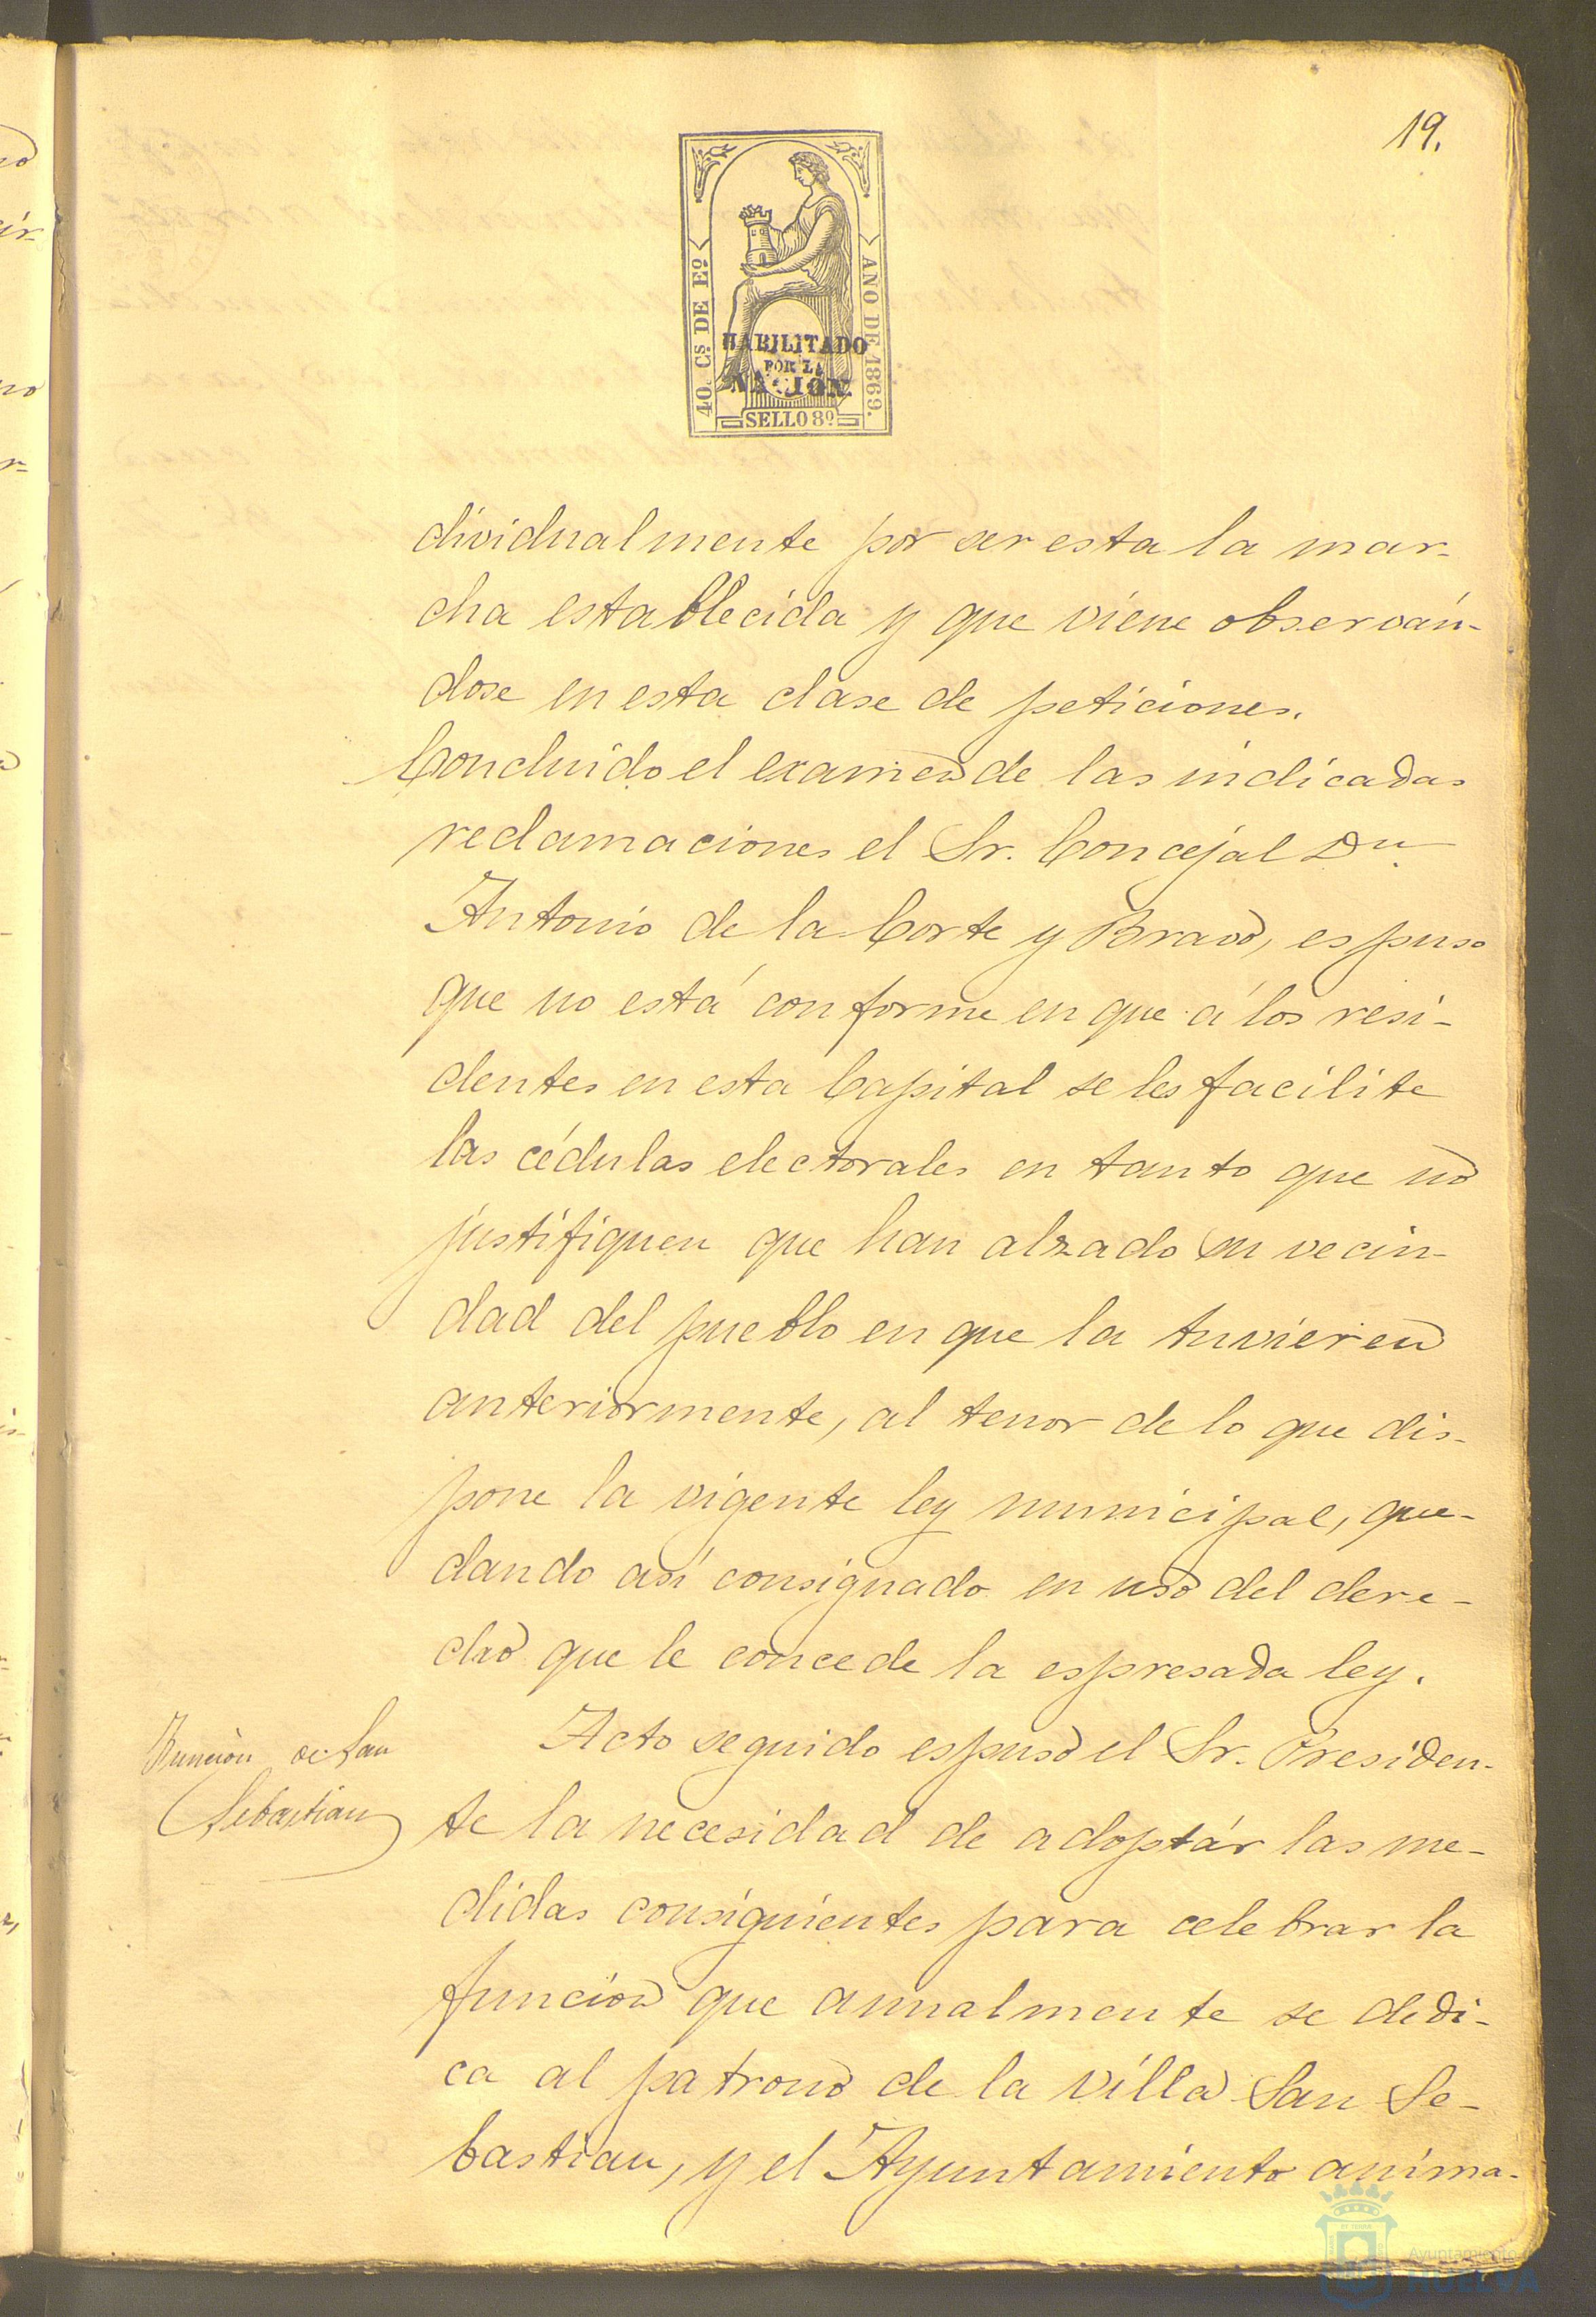 19.
40. Cs. DE Eo.
AÑO DE 1869.
HABILITADO
POR LA
NACION
SELLO 8º
dividualmente por ser esta la mar-
cha establecida y que viene observán-
dose en esta clase de peticiones.
Concluido el examen de las indicadas
reclamaciones el Sr. Concejal Dn.
Antonio de la Corte y Bravo, espuso
que no está conforme en que á los resi-
dentes en esta Capital se les facilite
las cédulas electorales en tanto que no
justifiquen que han alzado su vecin-
dad del pueblo en que la tuvieren
anteriormente, al tenor de lo que dis-
pone la vigente ley municipal, que-
dando así consignado en uso del dere-
cho que le concede la espresada ley.
Función de San
Sebastian
Acto seguido espuso el Sr. Presiden-
te la necesidad de adoptár las me-
didas consiguientes para celebrar la
funcion que anualmente se dedi-
ca al patrono de la villa San Se-
bastian, y el Ayuntamiento anima-
Ayuntamiento
HUELVA